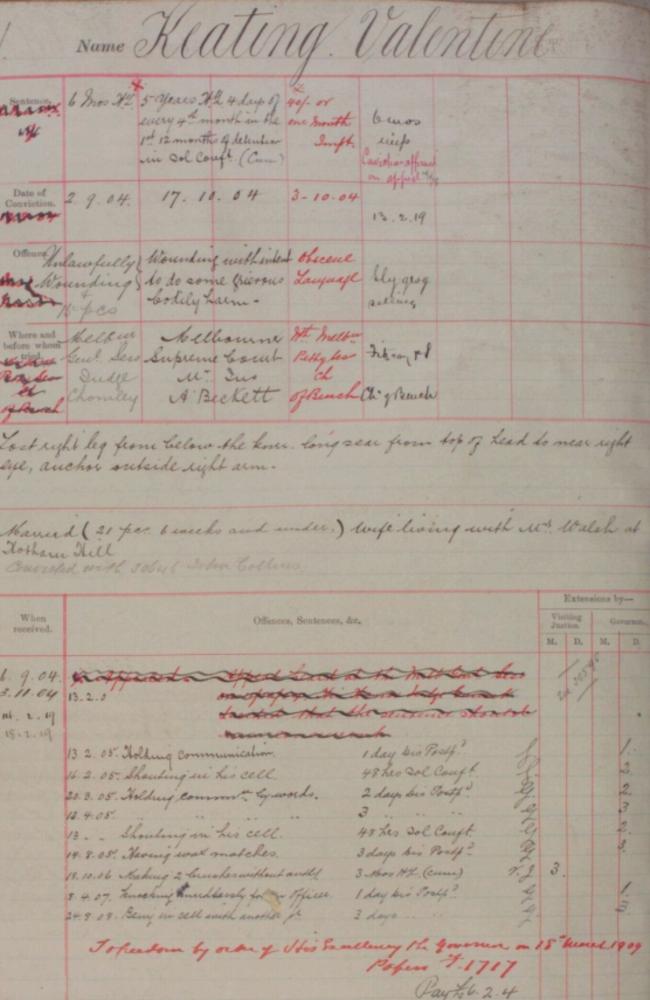 Name Keating Valentine
Sentence.
6 Mos HL
5 Years HL 4 days of
every 4th month in the
1st 12 months of detention
in Sol Conft. (Cum)
40/- or
one month
Impt.
6 mos
imp
Conviction affirmed
on appeal
Date of
Conviction.
2. 9. 04.
17. 10. 04
3-10-04
13. 2. 19
Offence
Unlawfully
Wounding
Wounding with intent
to do some grievous
bodily harm -
Obscene
Language
sly grog
selling
Where and
before whom
tried.
Melbn
Genl Sess
Judge
Chomley
Melbourne
Supreme Court
Mr Jus
A'Beckett
Nth Melbn
Petty Sess
Ch
of Bench
Fitzroy
Ch of Bench
Lost right leg from below the knee. long scar from top of head to near right
eye, anchor outside right arm.
Married (21 pcs. 6 weeks and under.) Wife living with Mrs. Walsh at
Hotham Hill
Convicted with John Collins
When
received.
Offences, Sentences, &c.
Extensions by—
Visiting
Justice.
Governor.
M. D. M. D.
6. 9. 04
3. 11. 04
14. 2. 19
15. 2. 19
13. 2. 0
13. 2. 05. Holding communication. 1 day dis Postpd 1.
16. 2. 05. Shouting in his cell. 48 hrs Sol Conft. 2.
20. 3. 05. Holding commn. by words. 2 days dis Postpd 2
12. 4. 05. " " " " 3 " " 3
13. - Shouting in his cell. 48 hrs Sol Conft. 2.
14. 8. 05. Having wax matches. 3 days dis Postpd 3.
18. 10. 06 Making 2 brushes without auth 3 Mos HL (cum) V.J 3.
8. 4. 07. 1 day dis Postpd 1.
24. 8. 08. Being in cell with another pr 3 days " " 3.
To freedom by order of His Excellency the Governor on 15th March 1909
Papers F. 1717
6. 2. 4